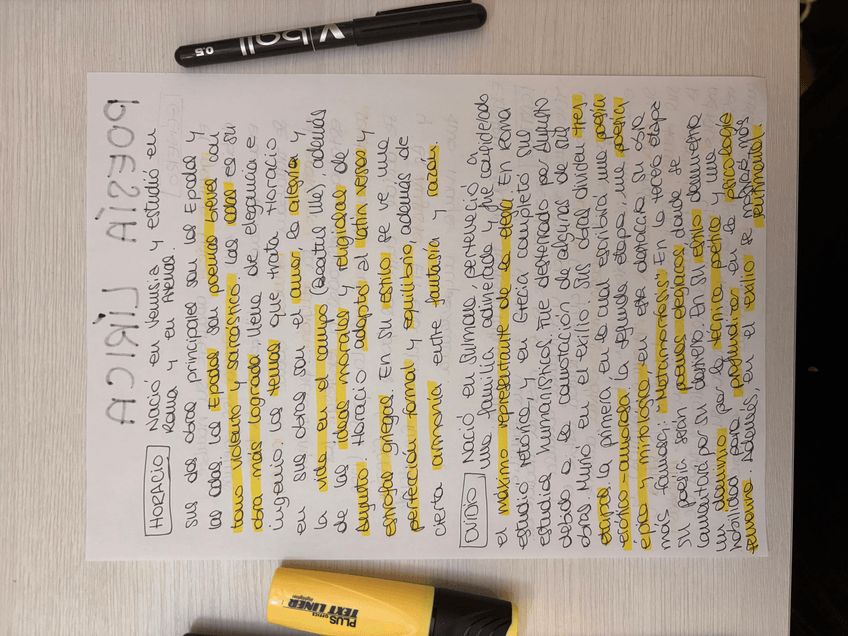 POESÍA LÍRICA
HORACIO Nació en Venusia y estudió en
Roma y en Atenas.
sus dos obras principales son los Epodos y
las odas. Los Epodos son poemas breves con
tono violento y sarcástico. Las odas es su
obra más lograda, llena de elegancia e
ingenio. Los temas que trata Horacio
en sus obras son el amor, la alegría y
la vida en el campo (Beatus Ille), además
de las ideas morales y religiosas de
Augusto. Horacio adapta al latín versos y
estrofas griegas. En su estilo se ve una
perfección formal y equilibrio, además de
cierta armonía entre fantasía y razón.
OVIDIO Nació en Sulmona, perteneció a
una familia adinerada y fue considerado
el máximo representante de la elegía. En Roma
estudió retórica, y en Grecia completó sus
estudios humanísticos. Fue desterrado por Augusto
debido a la connotación de algunas de sus
obras. Murió en el exilio. Sus obras dividen tres
etapas: la primera, en la cual escribiría una poesía
erótico-amorosa, la segunda etapa, una poesía
épica y mitológica, en esta destaca su obra
más famosa: "Metamorfosis". En la tercera etapa
su poesía serán poemas elegíacos donde se
lamentará por su destierro. En su estilo demuestra
un dominio por la técnica poética y una
habilidad para profundizar en la psicología
femenina. Además, en el exilio se mostrará más
sentimental.
V ball
0.5
PLUS OFFICE
TEXT LINER